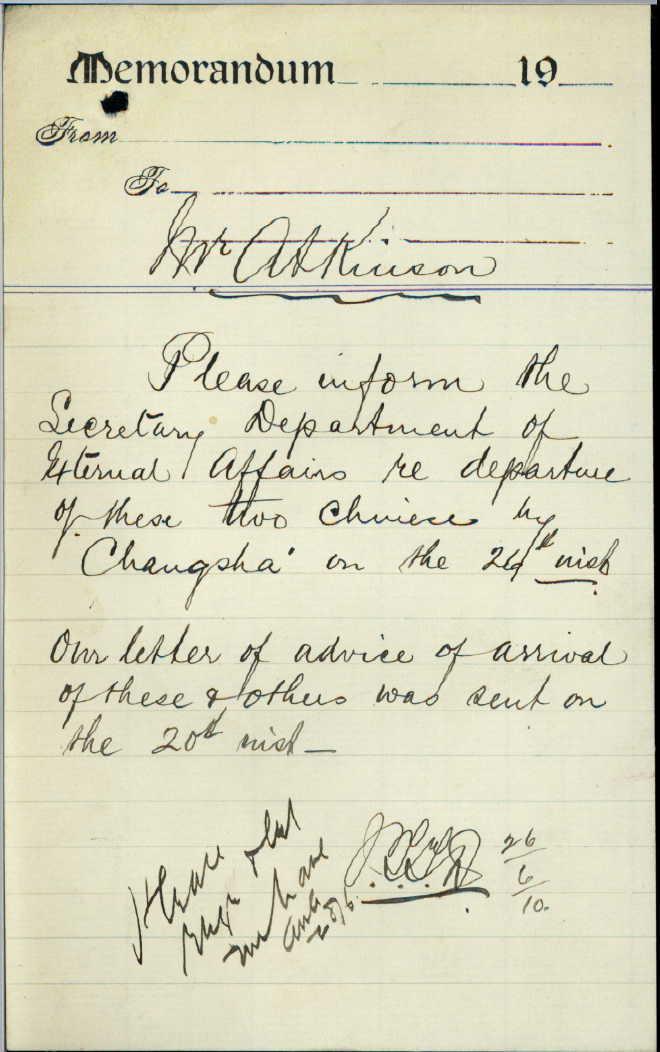 Memorandum 19
From
To
Mr Atkinson
Please inform the
Secretary Department of
External Affairs re departure
of these two Chinese by
Changsha' on the 24th inst
Our letter of advice of arrival
of these & others was sent on
the 20th inst —
26
6
10.